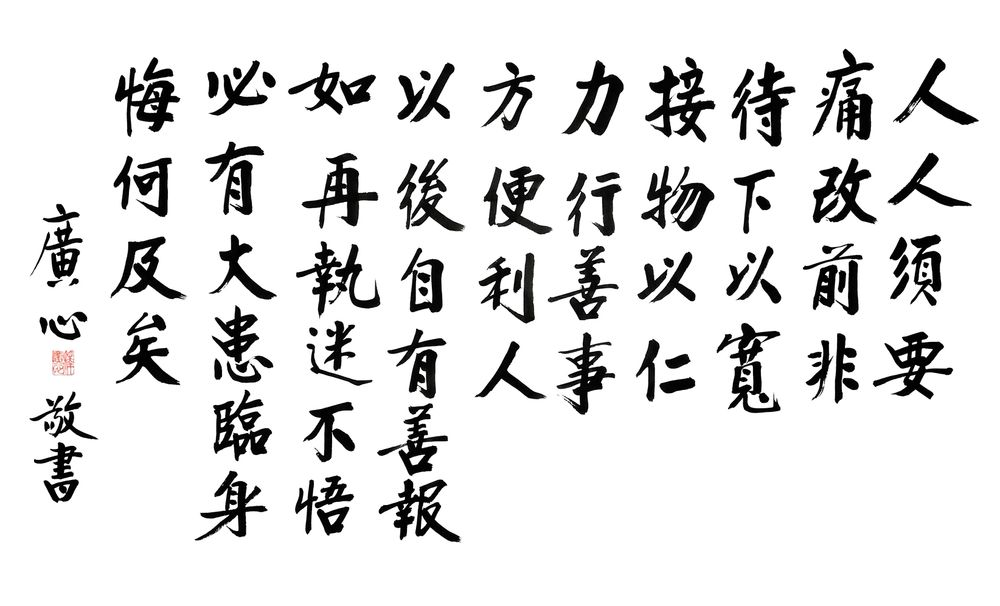 人人須要
痛改前非
待下以寬
接物以仁
力行善事
方便利人
以後自有善報
如再執迷不悟
必有大患臨身
悔何及矣
廣心敬書